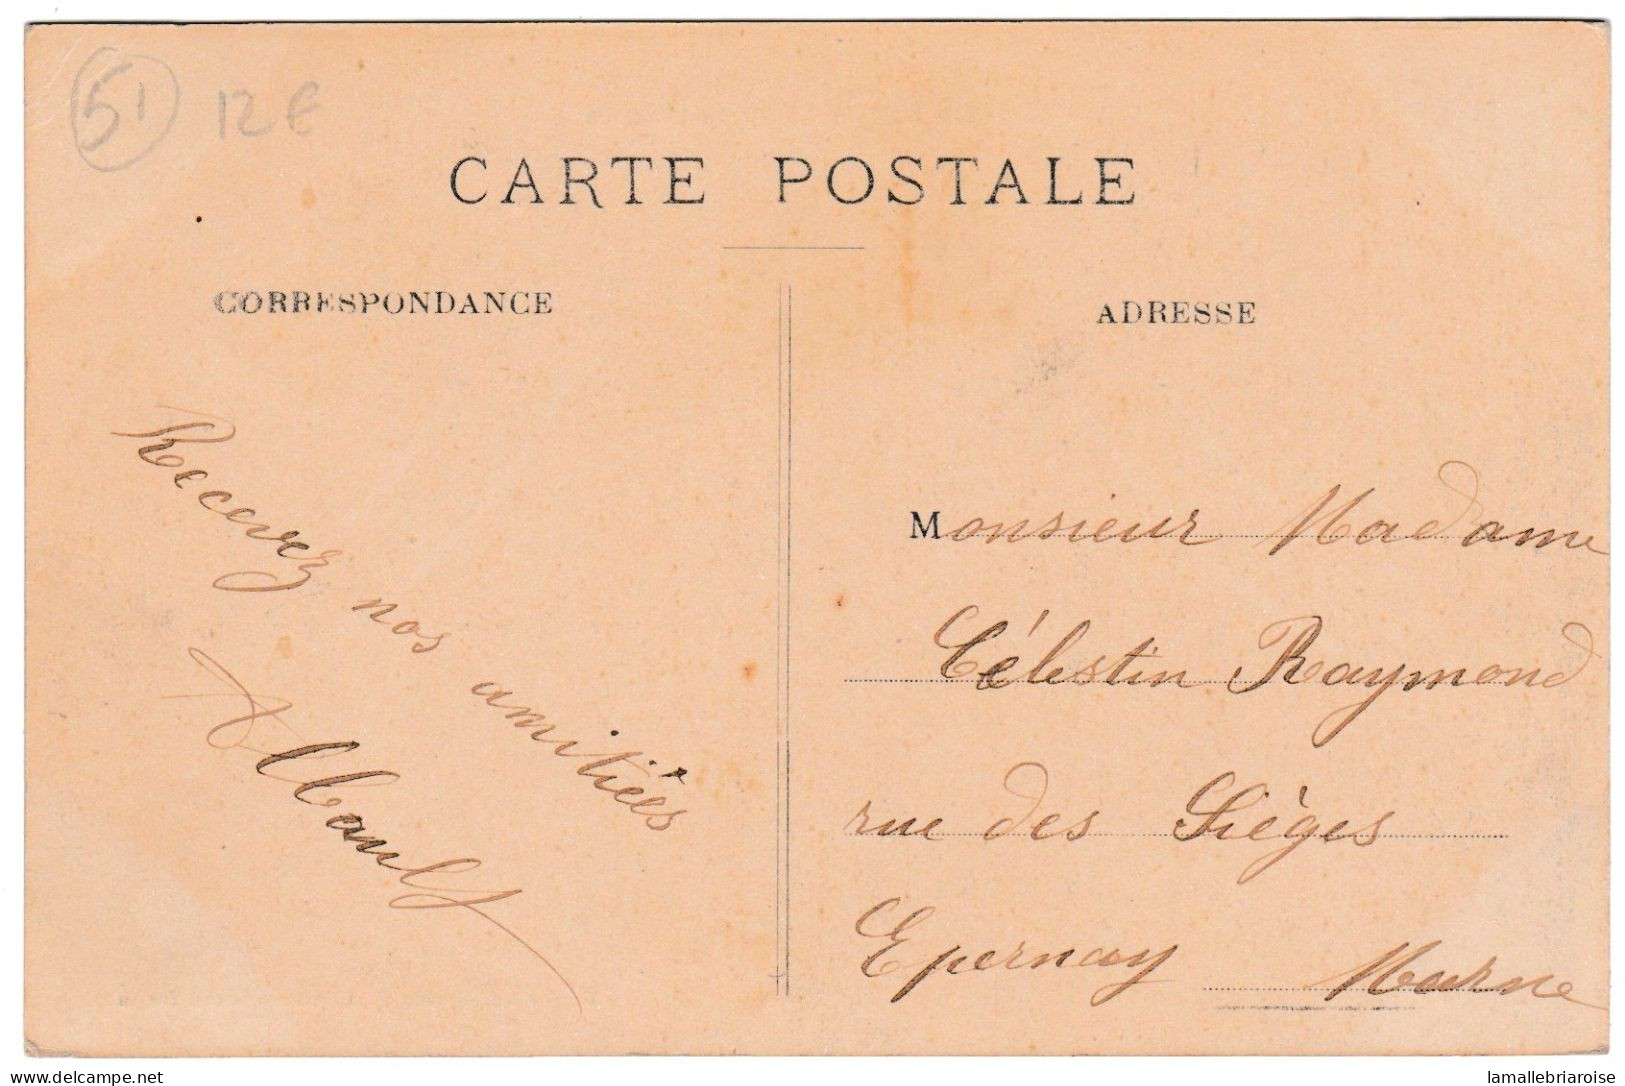 51 12€
CARTE POSTALE
CORRESPONDANCE
ADRESSE
Recevez nos amitiés
Monsieur Madame
Célestin Raymond
rue des Sièges
Epernay Marne
delcampe.net
lamallebriaroise